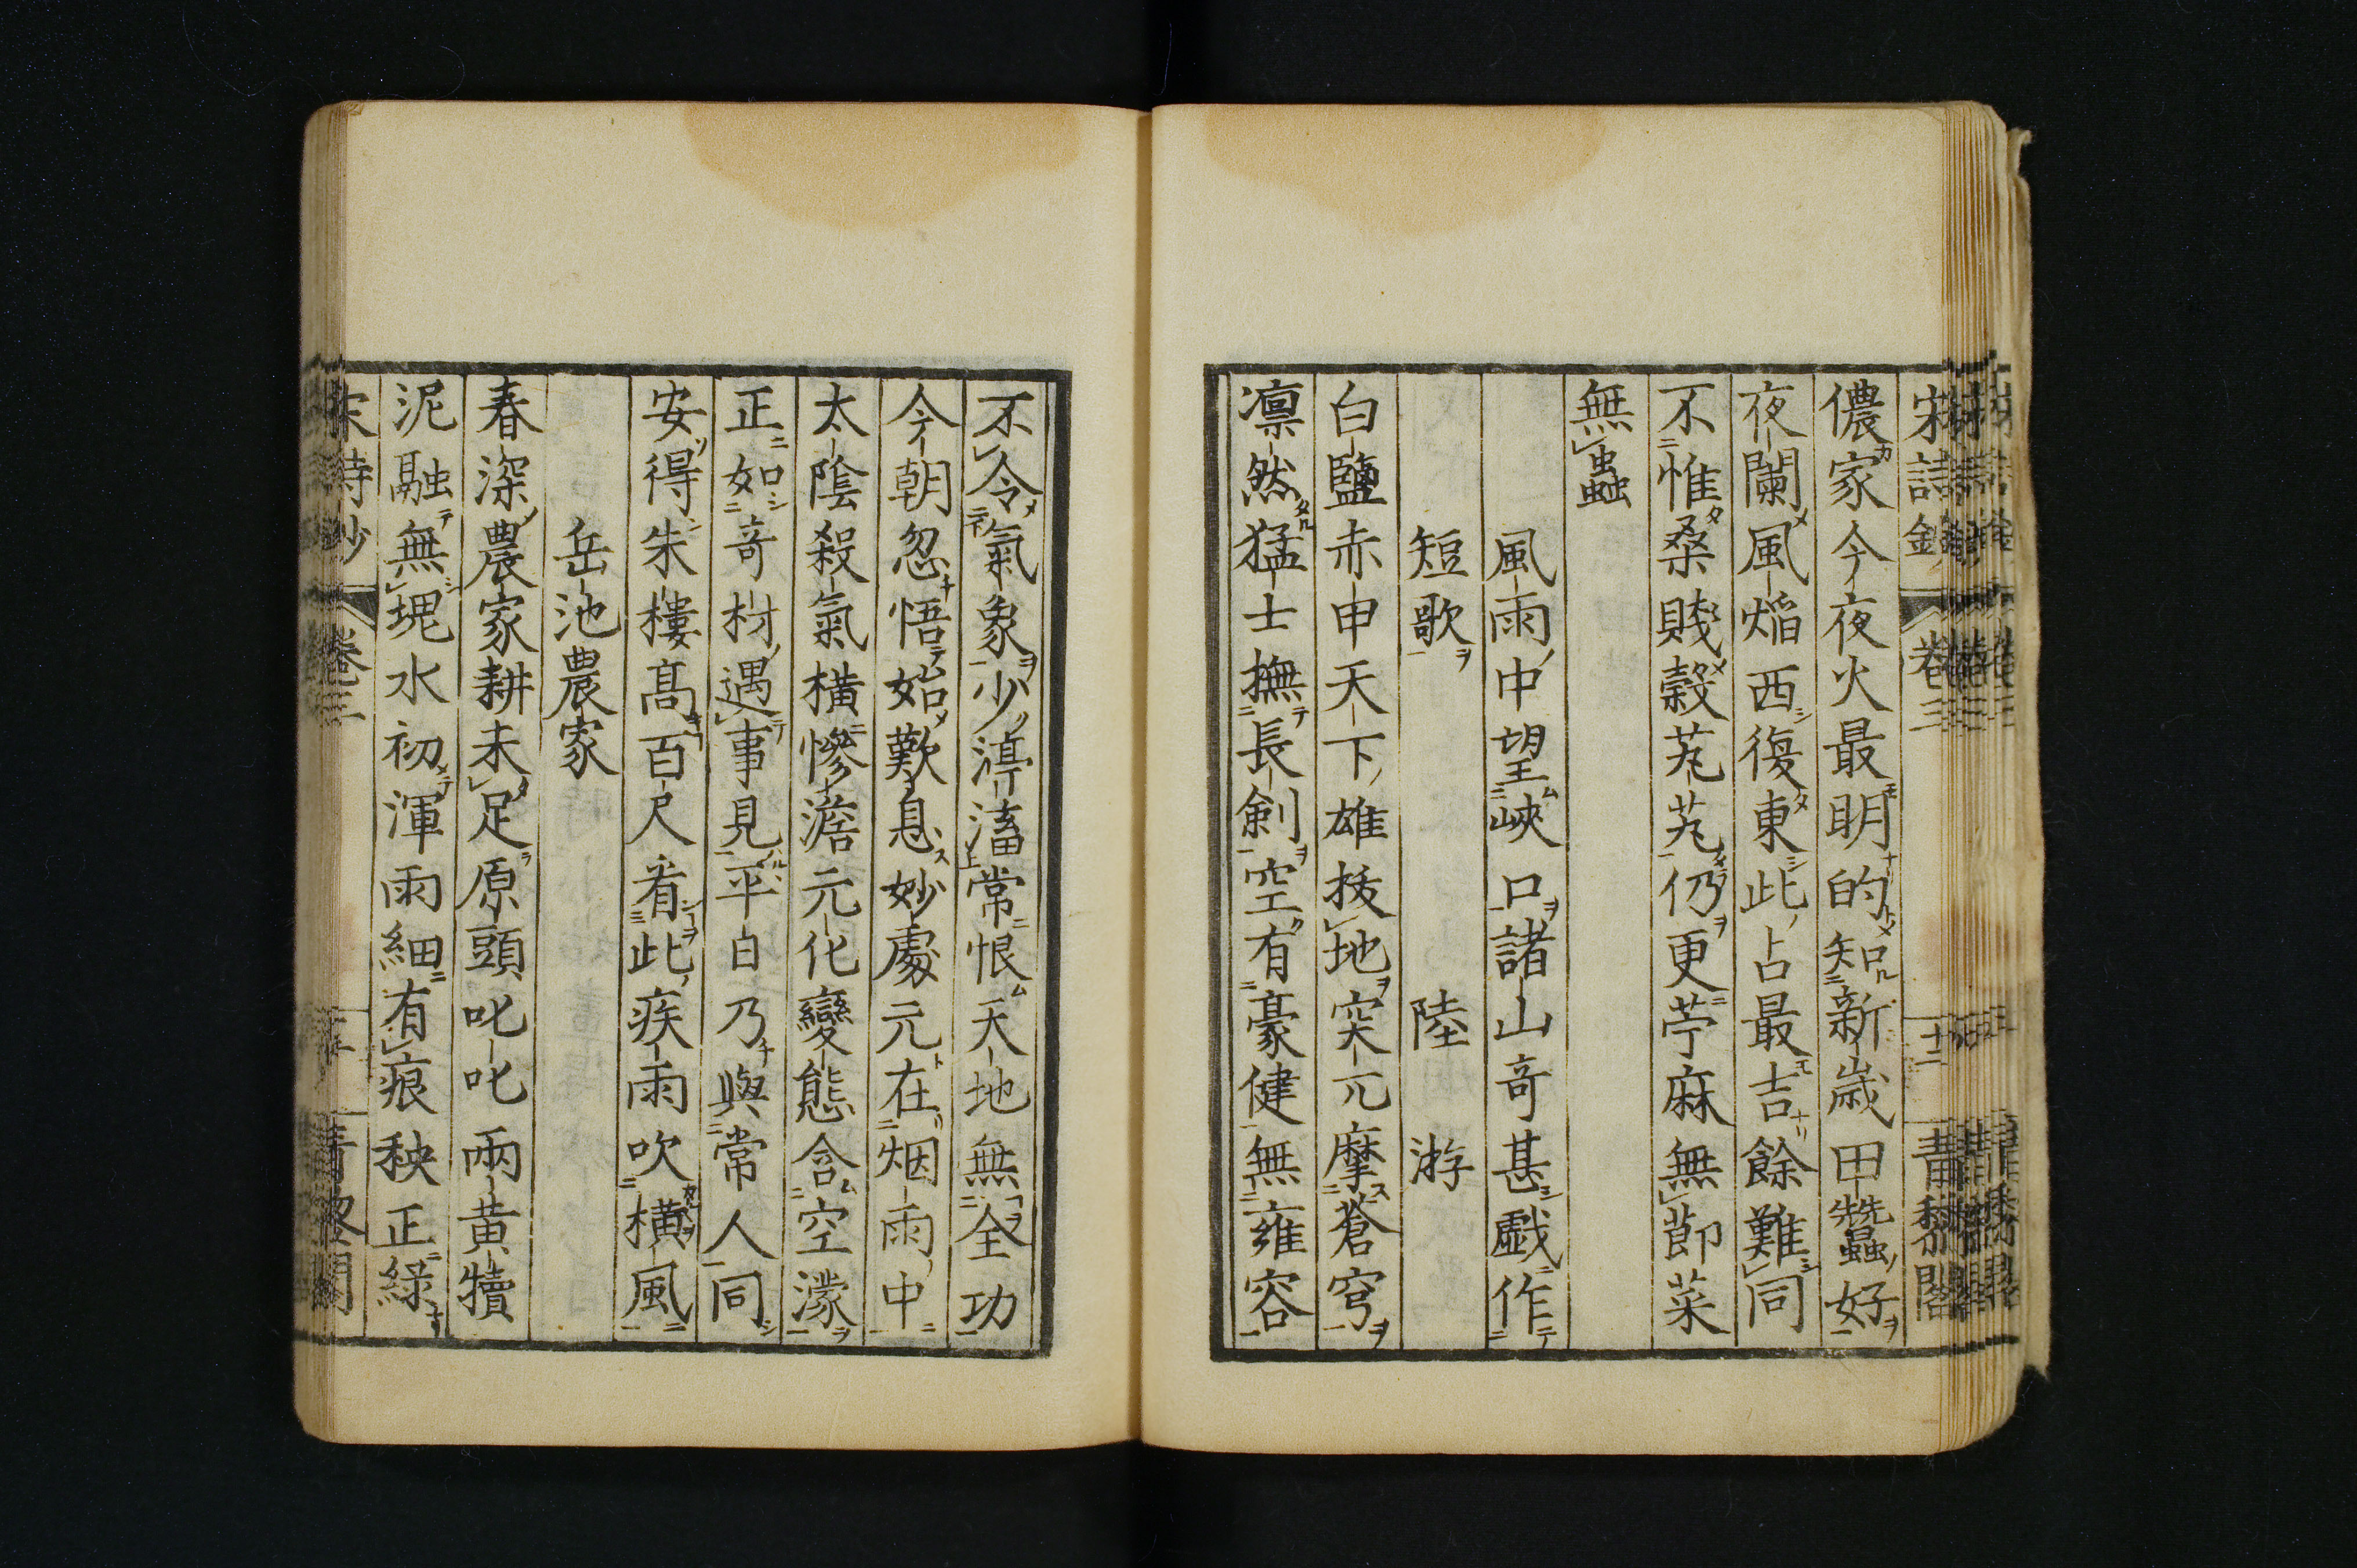 儂家今夜火最明的知新歳田蠶好
夜闌風焰西復東此占最吉餘難同
不惟桑賤穀芃芃仍更苧麻無莭菜
無蟲
風雨中望峽口諸山奇甚戯作
短歌 陸游
白鹽赤甲天下雄拔地突兀摩蒼穹
凛然猛士撫長剣空有豪健無雍容
不令氣象少渟滀常恨天地無全功
今朝忽悟始歎息妙處元在烟雨中
太陰殺氣橫慘澹元化變態含空濛
正如奇材遇事見平白乃與常人同
安得朱樓高百尺看此疾雨吹橫風
岳池農家
春深農家耕未足原頭叱叱兩黄犢
泥融無塊水初渾雨細有痕秧正緑
卷三